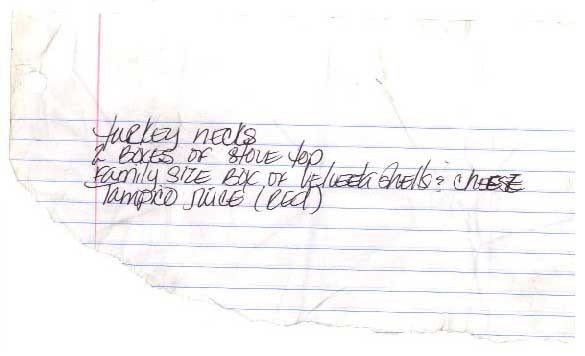 turkey necks
2 BOXES OF STOVE top
Family SIZE BOX OF Velveeta shells & CHEESE
Tampico JUICE (RED)